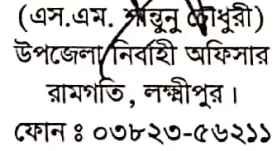 (এস.এম. শান্তুনু চৌধুরী)
উপজেলা নির্বাহী অফিসার
রামগতি, লক্ষ্মীপুর।
ফোন ঃ ০৩৮২৩-৫৬২১১